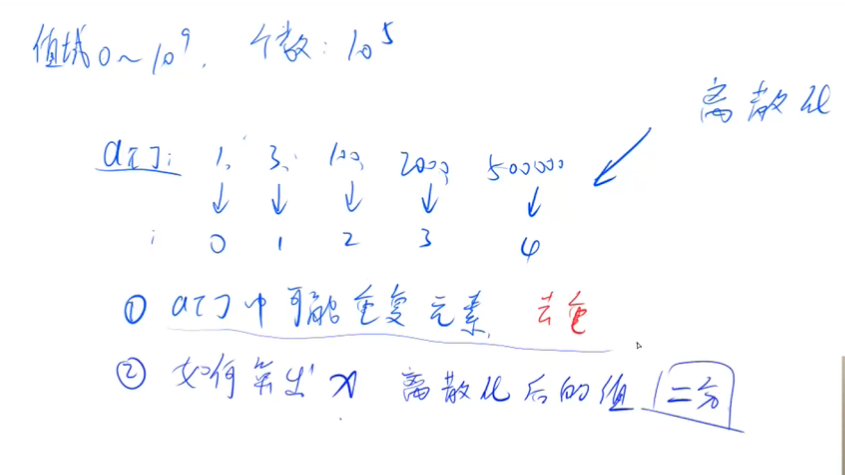 值域0~10⁹. 个数: 10⁵
离散化
a[]: 1, 3, 100, 2000, 500000
↓ ↓ ↓ ↓ ↓
i 0 1 2 3 4
① a[]中可能重复元素 去重
② 如何算出x 离散化后的值 二分